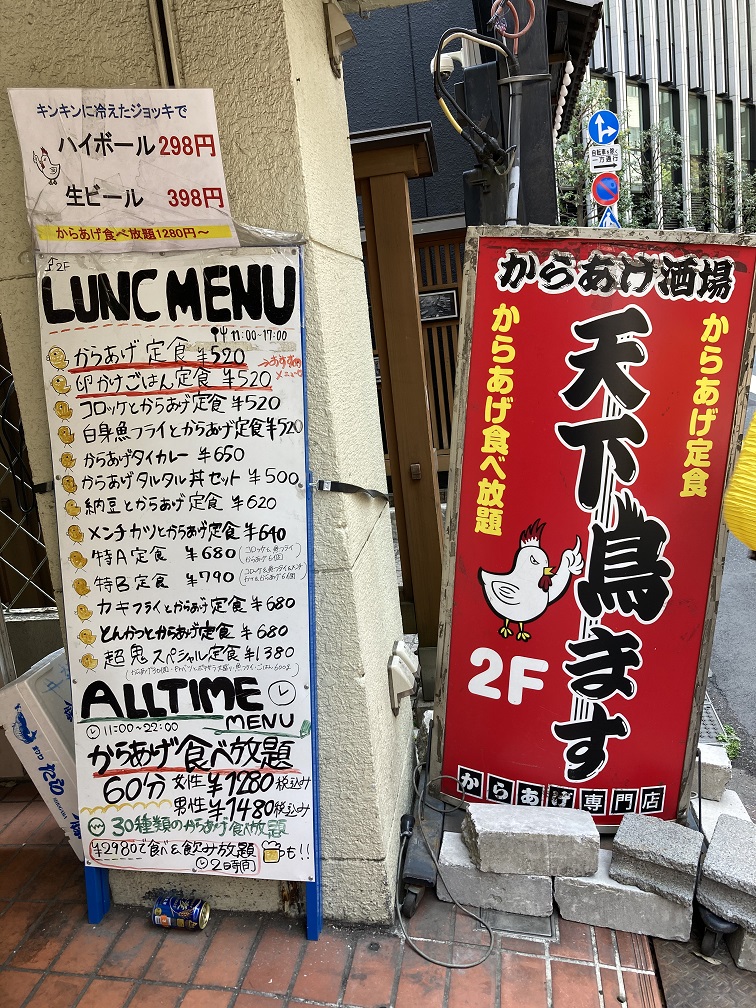 キンキンに冷えたジョッキで
ハイボール 298円
生ビール 398円
からあげ食べ放題1280円～
2F
LUNC MENU
11:00~17:00
からあげ定食 ¥520
→おすすめメニュー
卵かけごはん定食 ¥520
コロッケとからあげ定食 ¥520
白身魚フライとからあげ定食 ¥520
からあげタイカレー ¥650
からあげタルタル丼セット ¥500
納豆とからあげ定食 ¥620
メンチカツとからあげ定食 ¥640
特A定食 ¥680
特B定食 ¥790
カキフライとからあげ定食 ¥680
とんかつとからあげ定食 ¥680
超鬼スペシャル定食 ¥1380
ALLTIME
MENU
11:00~22:00
からあげ食べ放題
60分 女性 ¥1280税込み
男性 ¥1480税込み
30種類のからあげ食べ放題
¥2980で食べ&飲み放題 も!!
2時間
からあげ酒場
からあげ定食
天下鳥ます
からあげ食べ放題
2F
からあげ専門店
自転車を除く
一方通行